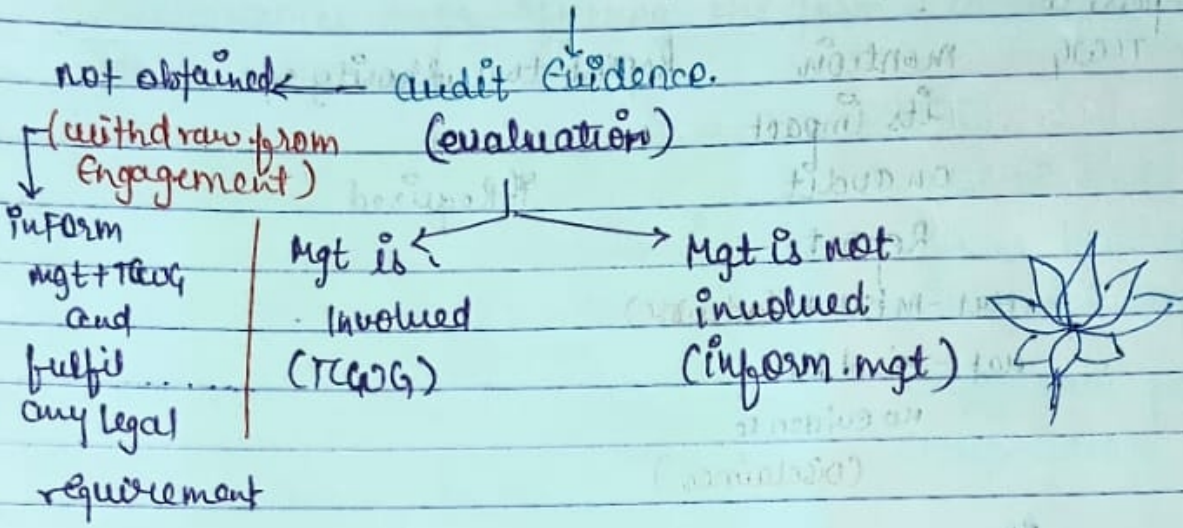 not obtained ← audit Evidence.
(withdraw from (evaluation)
Engagement)
inform
mgt + TCWG
and
fulfil ......
any legal
requirement
Mgt is
involved
(TCWG)
Mgt is not
involved
(inform mgt)